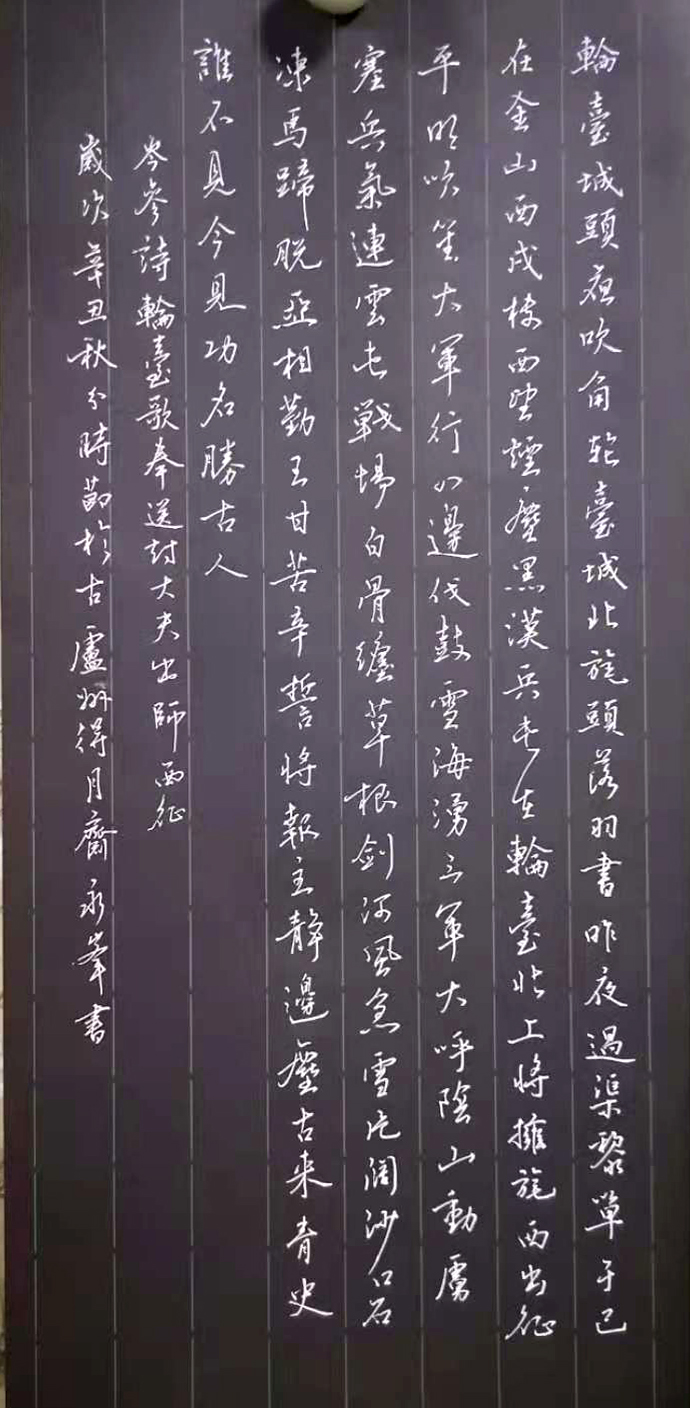 輪臺城頭夜吹角輪臺城北旄頭落羽書昨夜過渠黎單于已
在金山西戍樓西望煙塵黑漢兵屯在輪臺北上將擁旄西出征
平明吹笛大軍行四邊伐鼓雪海湧三軍大呼陰山動虜
塞兵氣連雲屯戰場白骨纏草根劍河風急雪片闊沙口石
凍馬蹄脫亞相勤王甘苦辛誓將報主靜邊塵古来青史
誰不見今見功名勝古人
岑參詩輪臺歌奉送封大夫出師西征
歲次辛丑秋分時節於古廬州得月齋永峯書